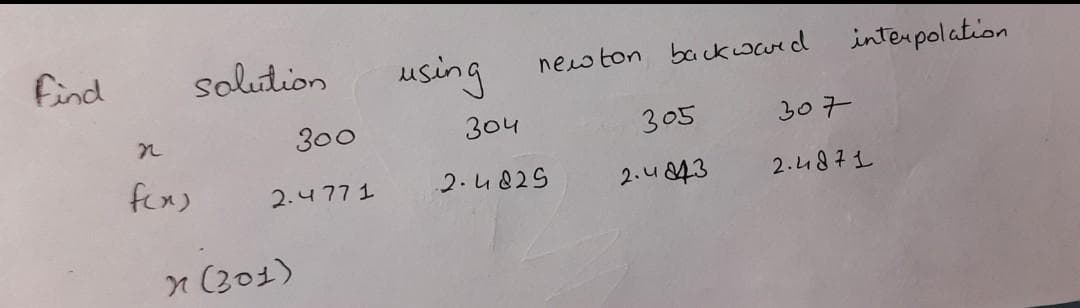 find solution using newton backward interpolation
x 300 304 305 307
f(x) 2.4771 2.4829 2.4843 2.4871
x (301)